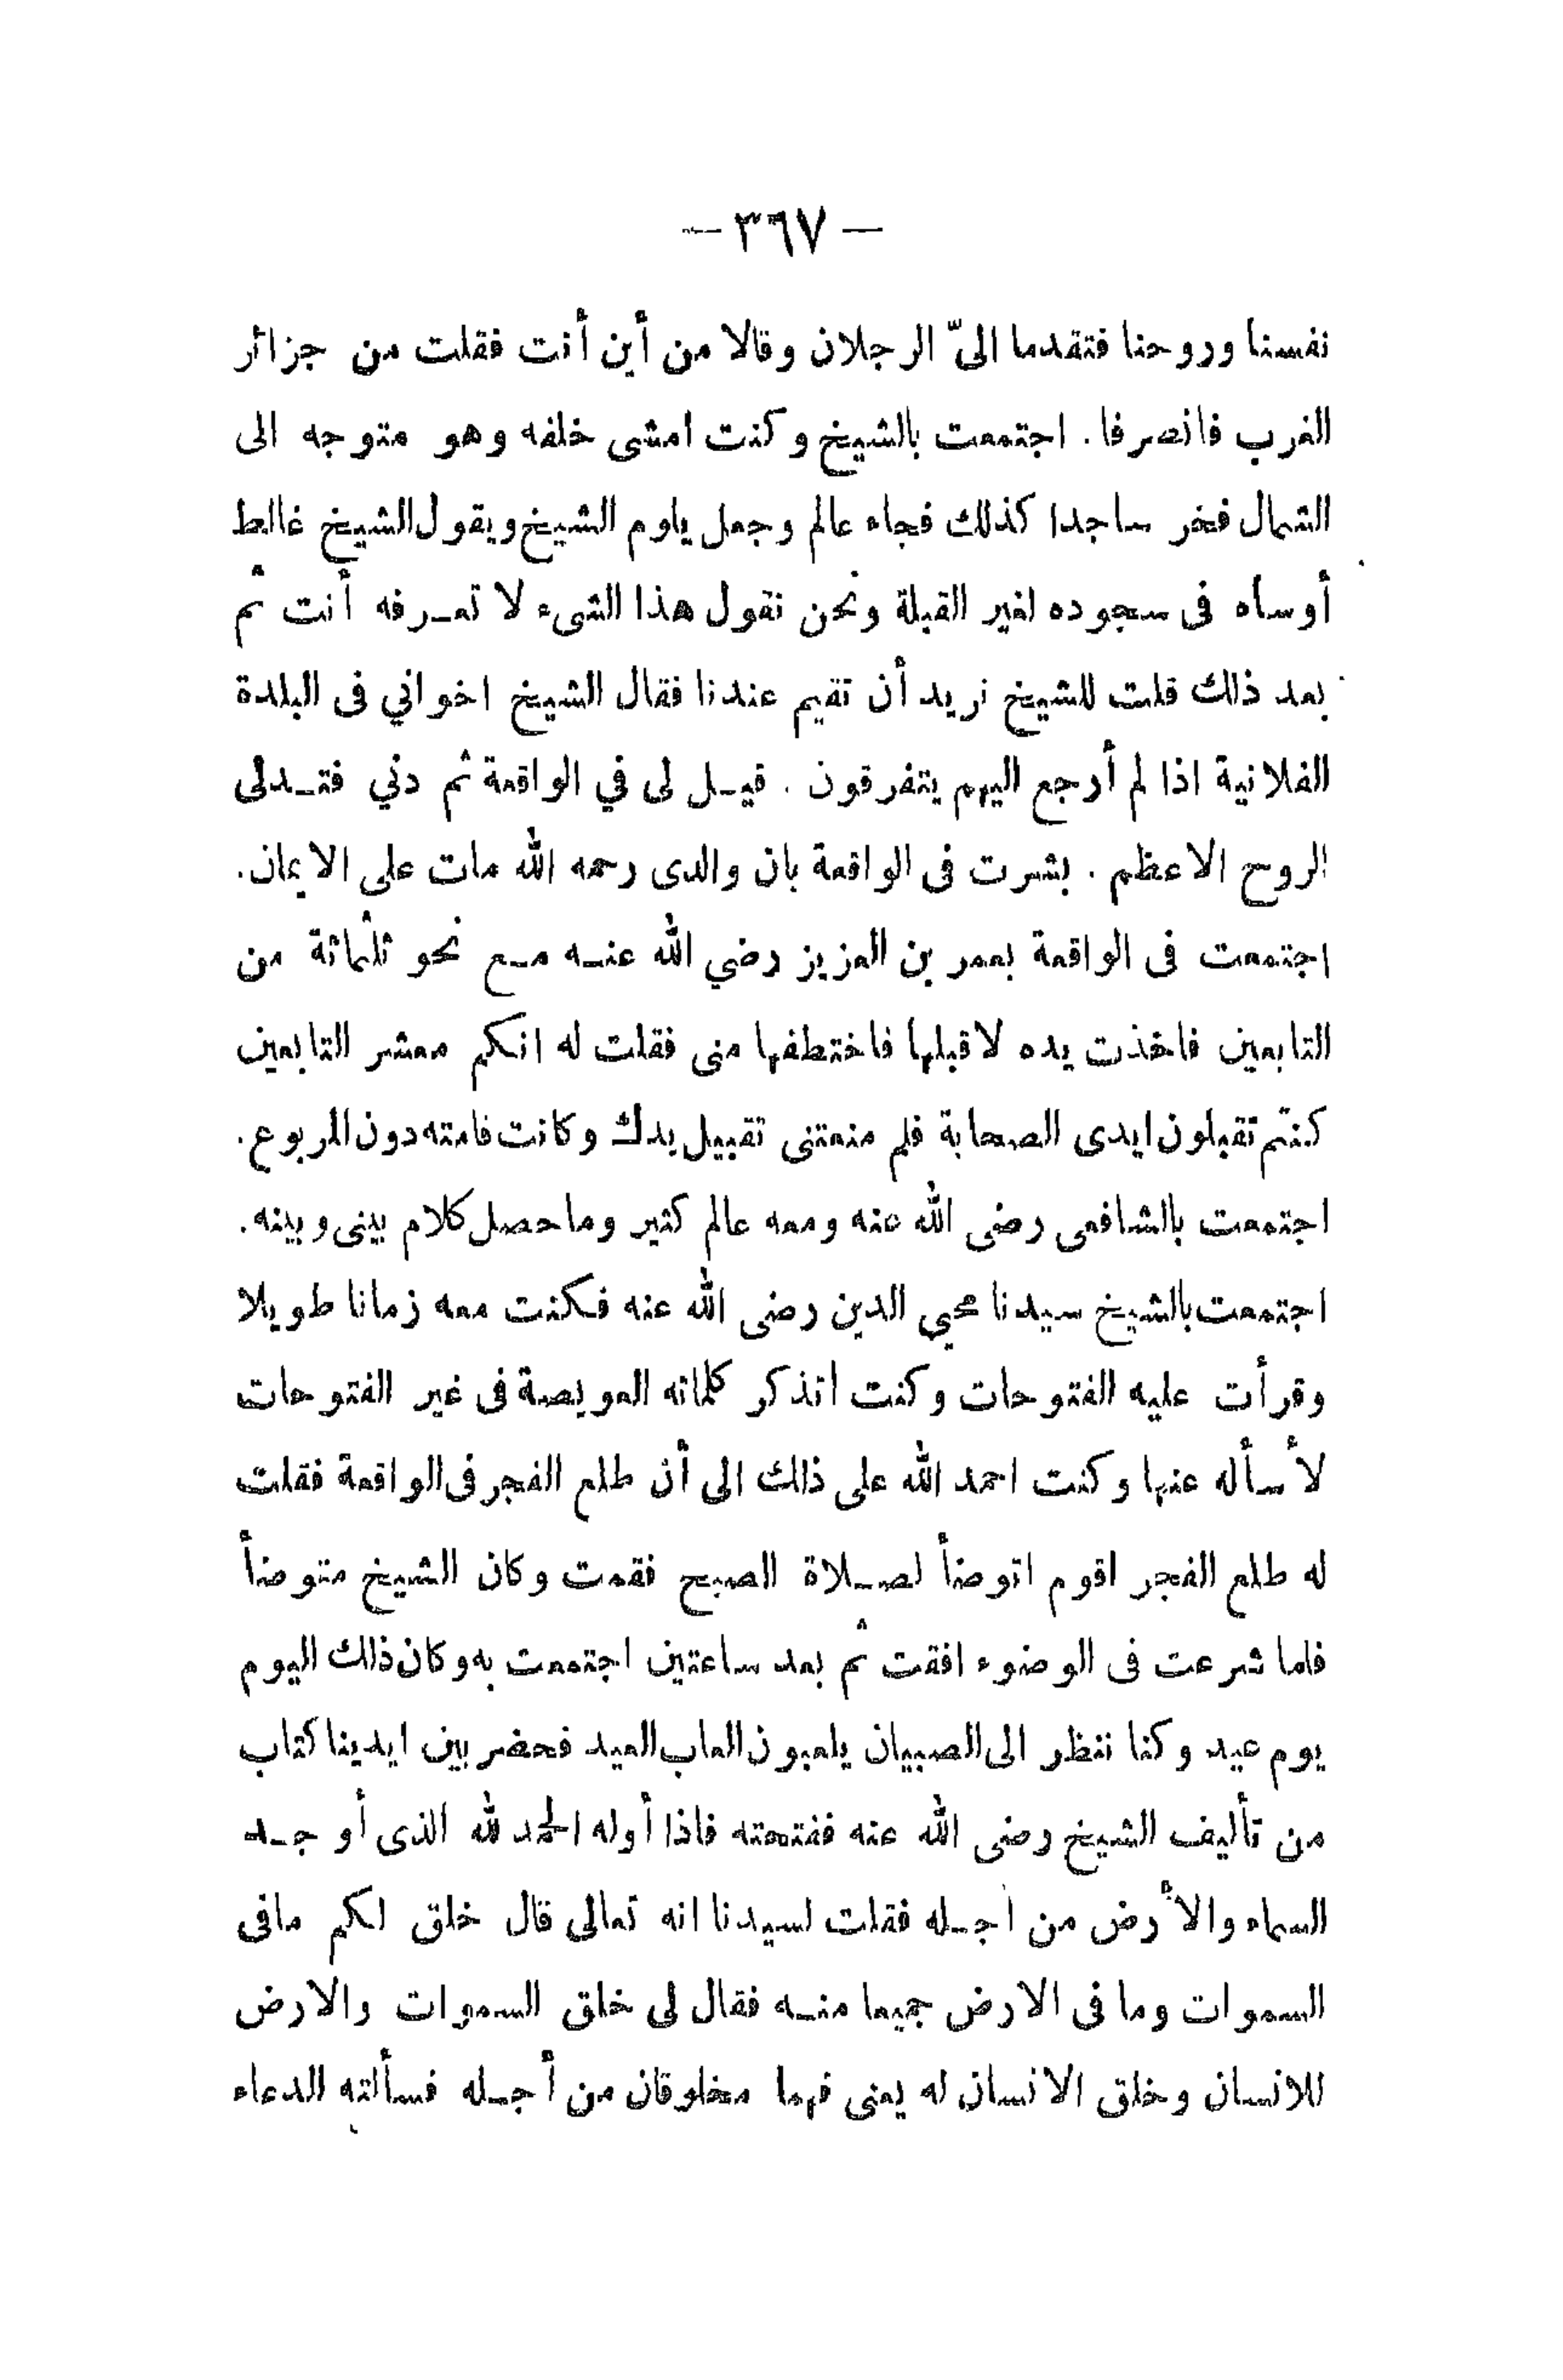 — ٣٦٧ —
نفسنا وروحنا فتقدما الىّ الرجلان وقالا من أين أنت فقلت من جزائر
الغرب فانصرفا. اجتمعت بالشيخ وكنت امشى خلفه وهو متوجه الى
الشمال فخر ساجدا كذلك فجاء عالم وجعل يلوم الشيخ ويقول الشيخ غالط
أوساه فى سجوده لغير القبلة ونحن نقول هذا الشىء لا تعرفه أنت ثم
بعد ذلك قلت للشيخ نريد أن تقيم عندنا فقال الشيخ اخواني فى البلدة
الفلانية اذا لم أرجع اليهم يتفرقون. قيل لى في الواقعة ثم دني فتدلى
الروح الاعظم. بشرت فى الواقعة بان والدى رحمه الله مات على الايمان.
اجتمعت فى الواقعة بعمر بن العزيز رضي الله عنه مع نحو ثلثمائة من
التابعين فاخذت يده لاقبلها فاختطفها منى فقلت له انكم معشر التابعين
كنتم تقبلون ايدى الصحابة فلم منعتنى تقبيل يدك وكانت قامته دون المربوع.
اجتمعت بالشافعى رضى الله عنه ومعه عالم كثير وما حصل كلام بينى وبينه.
اجتمعت بالشيخ سيدنا محيي الدين رضى الله عنه فكنت معه زمانا طويلا
وقرأت عليه الفتوحات وكنت اتذكر كلماته العويصة فى غير الفتوحات
لأسأله عنها وكنت احمد الله على ذلك الى أن طلع الفجر فى الواقعة فقلت
له طلع الفجر اقوم اتوضأ لصلاة الصبح فقمت وكان الشيخ متوضأ
فلما شرعت فى الوضوء افقت ثم بعد ساعتين اجتمعت به وكان ذلك اليوم
يوم عيد وكنا ننظر الى الصبيان يلعبون العاب العيد فحضر بين ايدينا كتاب
من تأليف الشيخ رضى الله عنه ففتحته فاذا أوله الحمد لله الذى أوجد
السماء والأرض من اجله فقلت لسيدنا انه تعالى قال خلق لكم مافى
السموات وما فى الارض جميعا منه فقال لى خلق السموات والارض
للانسان وخلق الانسان له يعنى فهما مخلوقان من أجله فسألته الدعاء